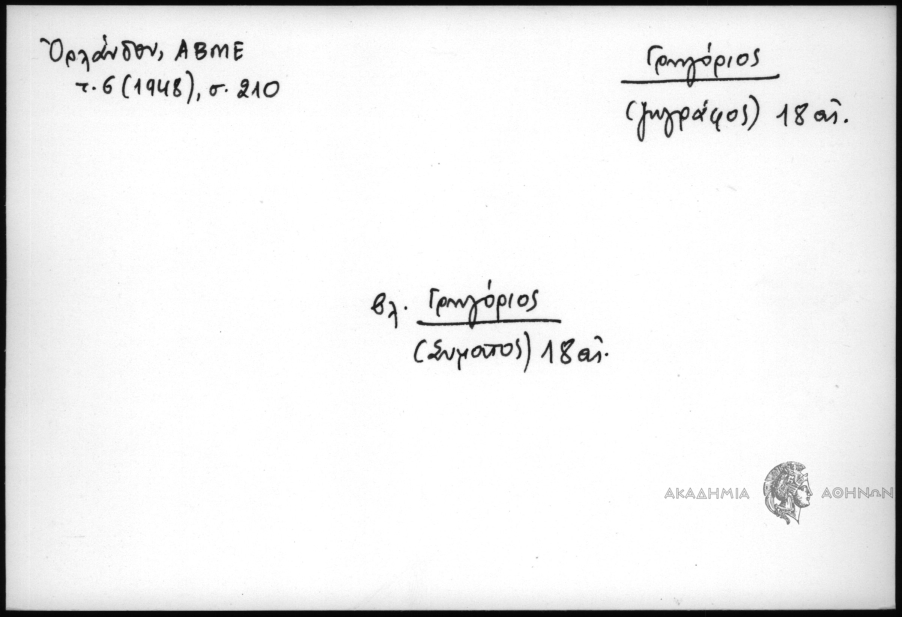 Ὀρλάνδου, ΑΒΜΕ
τ. 6 (1948), σ. 210
Γρηγόριος
(ζωγράφος) 18 αἰ.
βλ. Γρηγόριος
( ) 18 αἰ.
ΑΚΑΔΗΜΙΑ ΑΘΗΝΩΝ